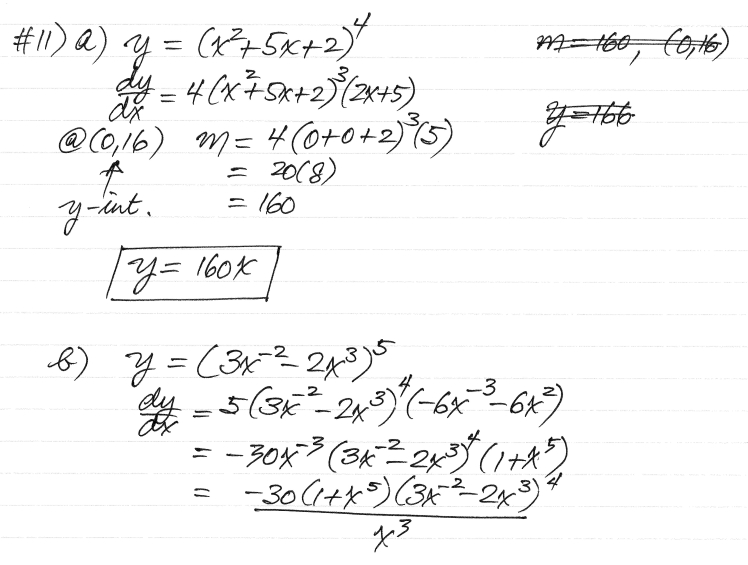 #11) a) y = (x²+5x+2)⁴
m=160, (0,16)
dy/dx = 4(x²+5x+2)³(2x+5)
y=166
@(0,16) m = 4(0+0+2)³(5)
↑ = 20(8)
y-int. = 160
y = 160x
b) y = (3x⁻² - 2x³)⁵
dy/dx = 5(3x⁻² - 2x³)⁴(-6x⁻³ - 6x²)
= -30x⁻³(3x⁻² - 2x³)⁴(1+x⁵)
= -30(1+x⁵)(3x⁻² - 2x³)⁴
x³